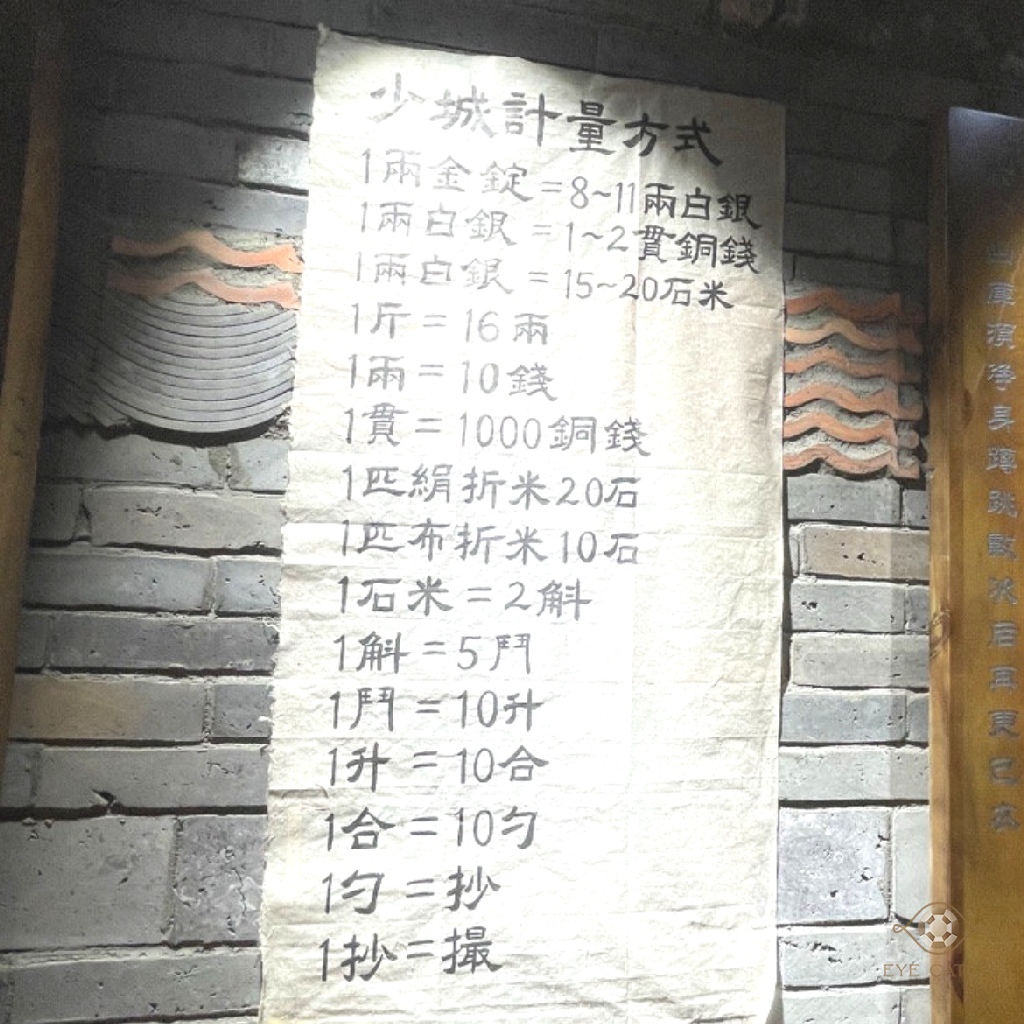 少城計量方式
1兩金錠=8~11兩白銀
1兩白銀=1~2貫銅錢
1兩白銀=15~20石米
1斤=16兩
1兩=10錢
1貫=1000銅錢
1匹絹折米20石
1匹布折米10石
1石米=2斛
1斛=5鬥
1鬥=10升
1升=10合
1合=10勺
1勺=抄
1抄=撮
EYE CAT